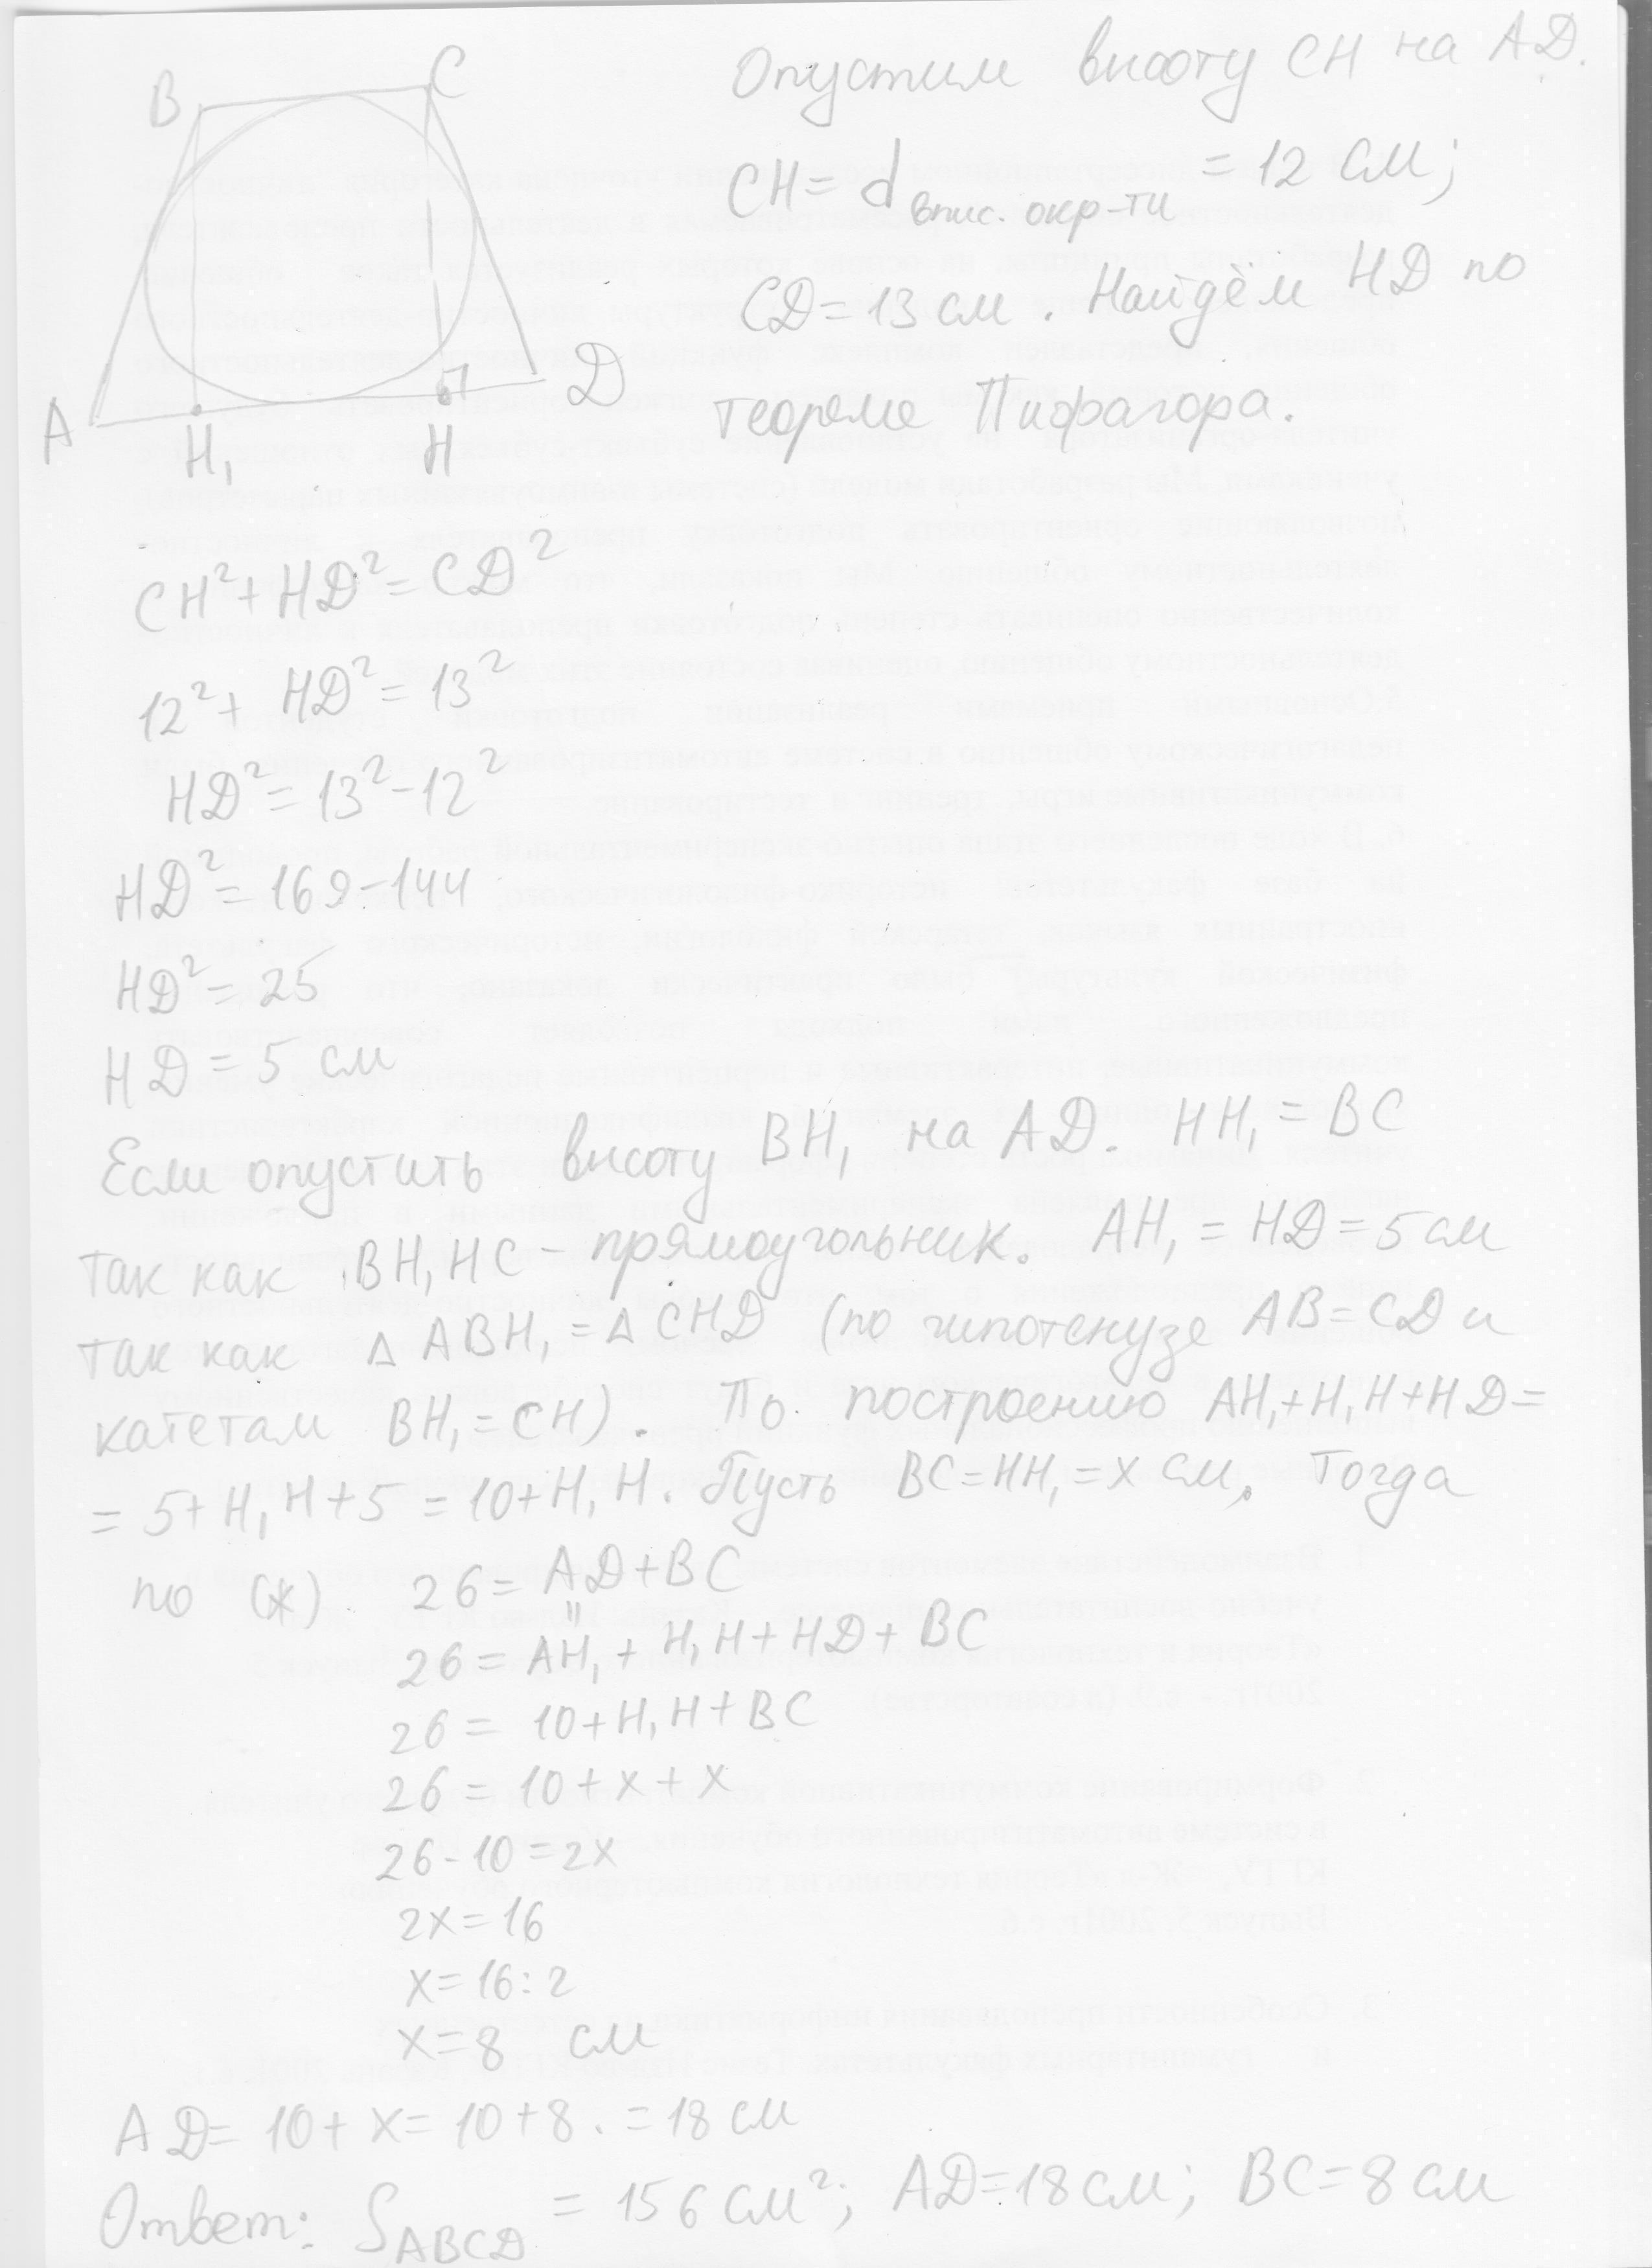 B
C
A
H₁
H
D
Опустим высоту CH на AD.
CH = d впис. окр-ти = 12 см;
CD = 13 см. Найдём HD по
теореме Пифагора.
CH² + HD² = CD²
12² + HD² = 13²
HD² = 13² - 12²
HD² = 169 - 144
HD² = 25
HD = 5 см
Если опустить высоту BH₁ на AD. HH₁ = BC
так как BH₁HC - прямоугольник. AH₁ = HD = 5 см
так как △ ABH₁ = △ CHD (по гипотенузе AB = CD и
катетам BH₁ = CH). По построению AH₁ + H₁H + HD =
= 5 + H₁H + 5 = 10 + H₁H. Пусть BC = HH₁ = x см. Тогда
по (*) 26 = AD + BC
"
26 = AH₁ + H₁H + HD + BC
26 = 10 + H₁H + BC
26 = 10 + x + x
26 - 10 = 2x
2x = 16
x = 16 : 2
x = 8 см
AD = 10 + x = 10 + 8 . = 18 см
Ответ: S ABCD = 156 см²; AD = 18 см; BC = 8 см